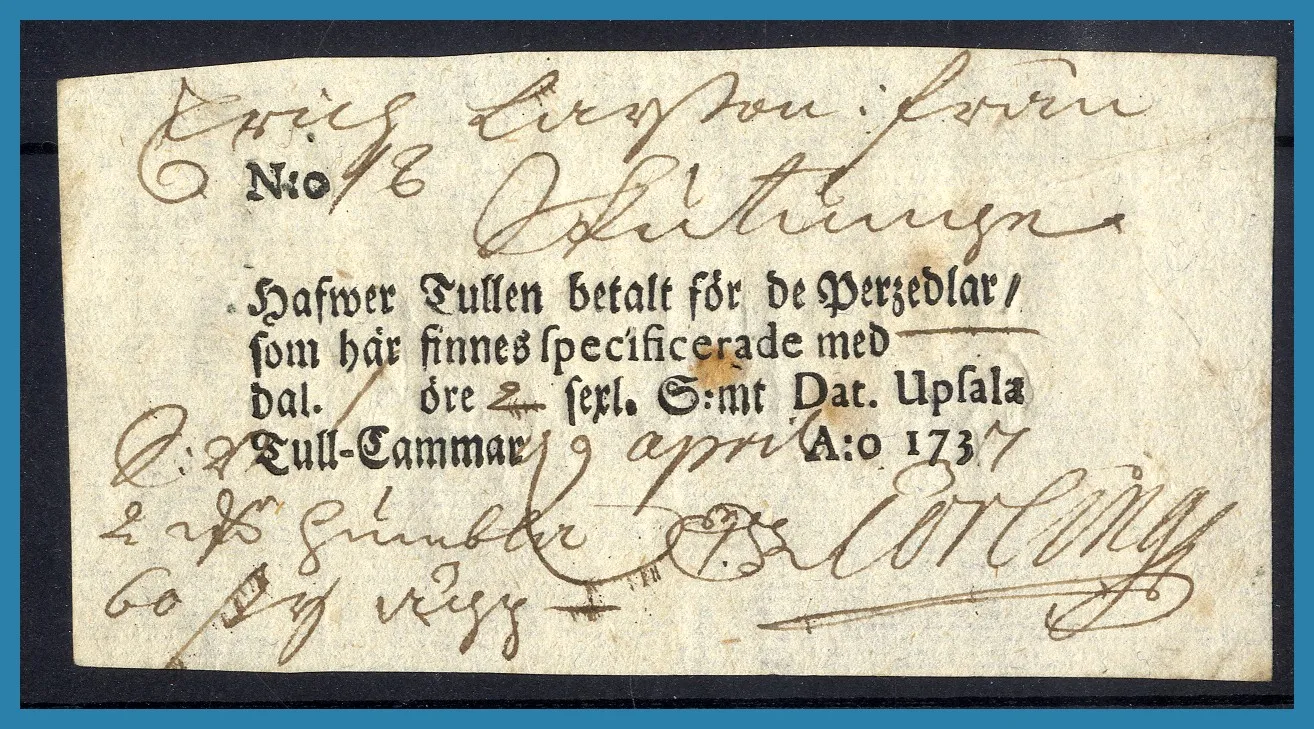 Erich Larsson: från
N:o 18
Hafwer Tullen betalt för de Perzedlar/
som här finnes specificerade med
dal. 1 öre 2 sexl. S:mt Dat. Upsala
Tull-Cammar 19 april A:o 1737
2 humbla
60 råg